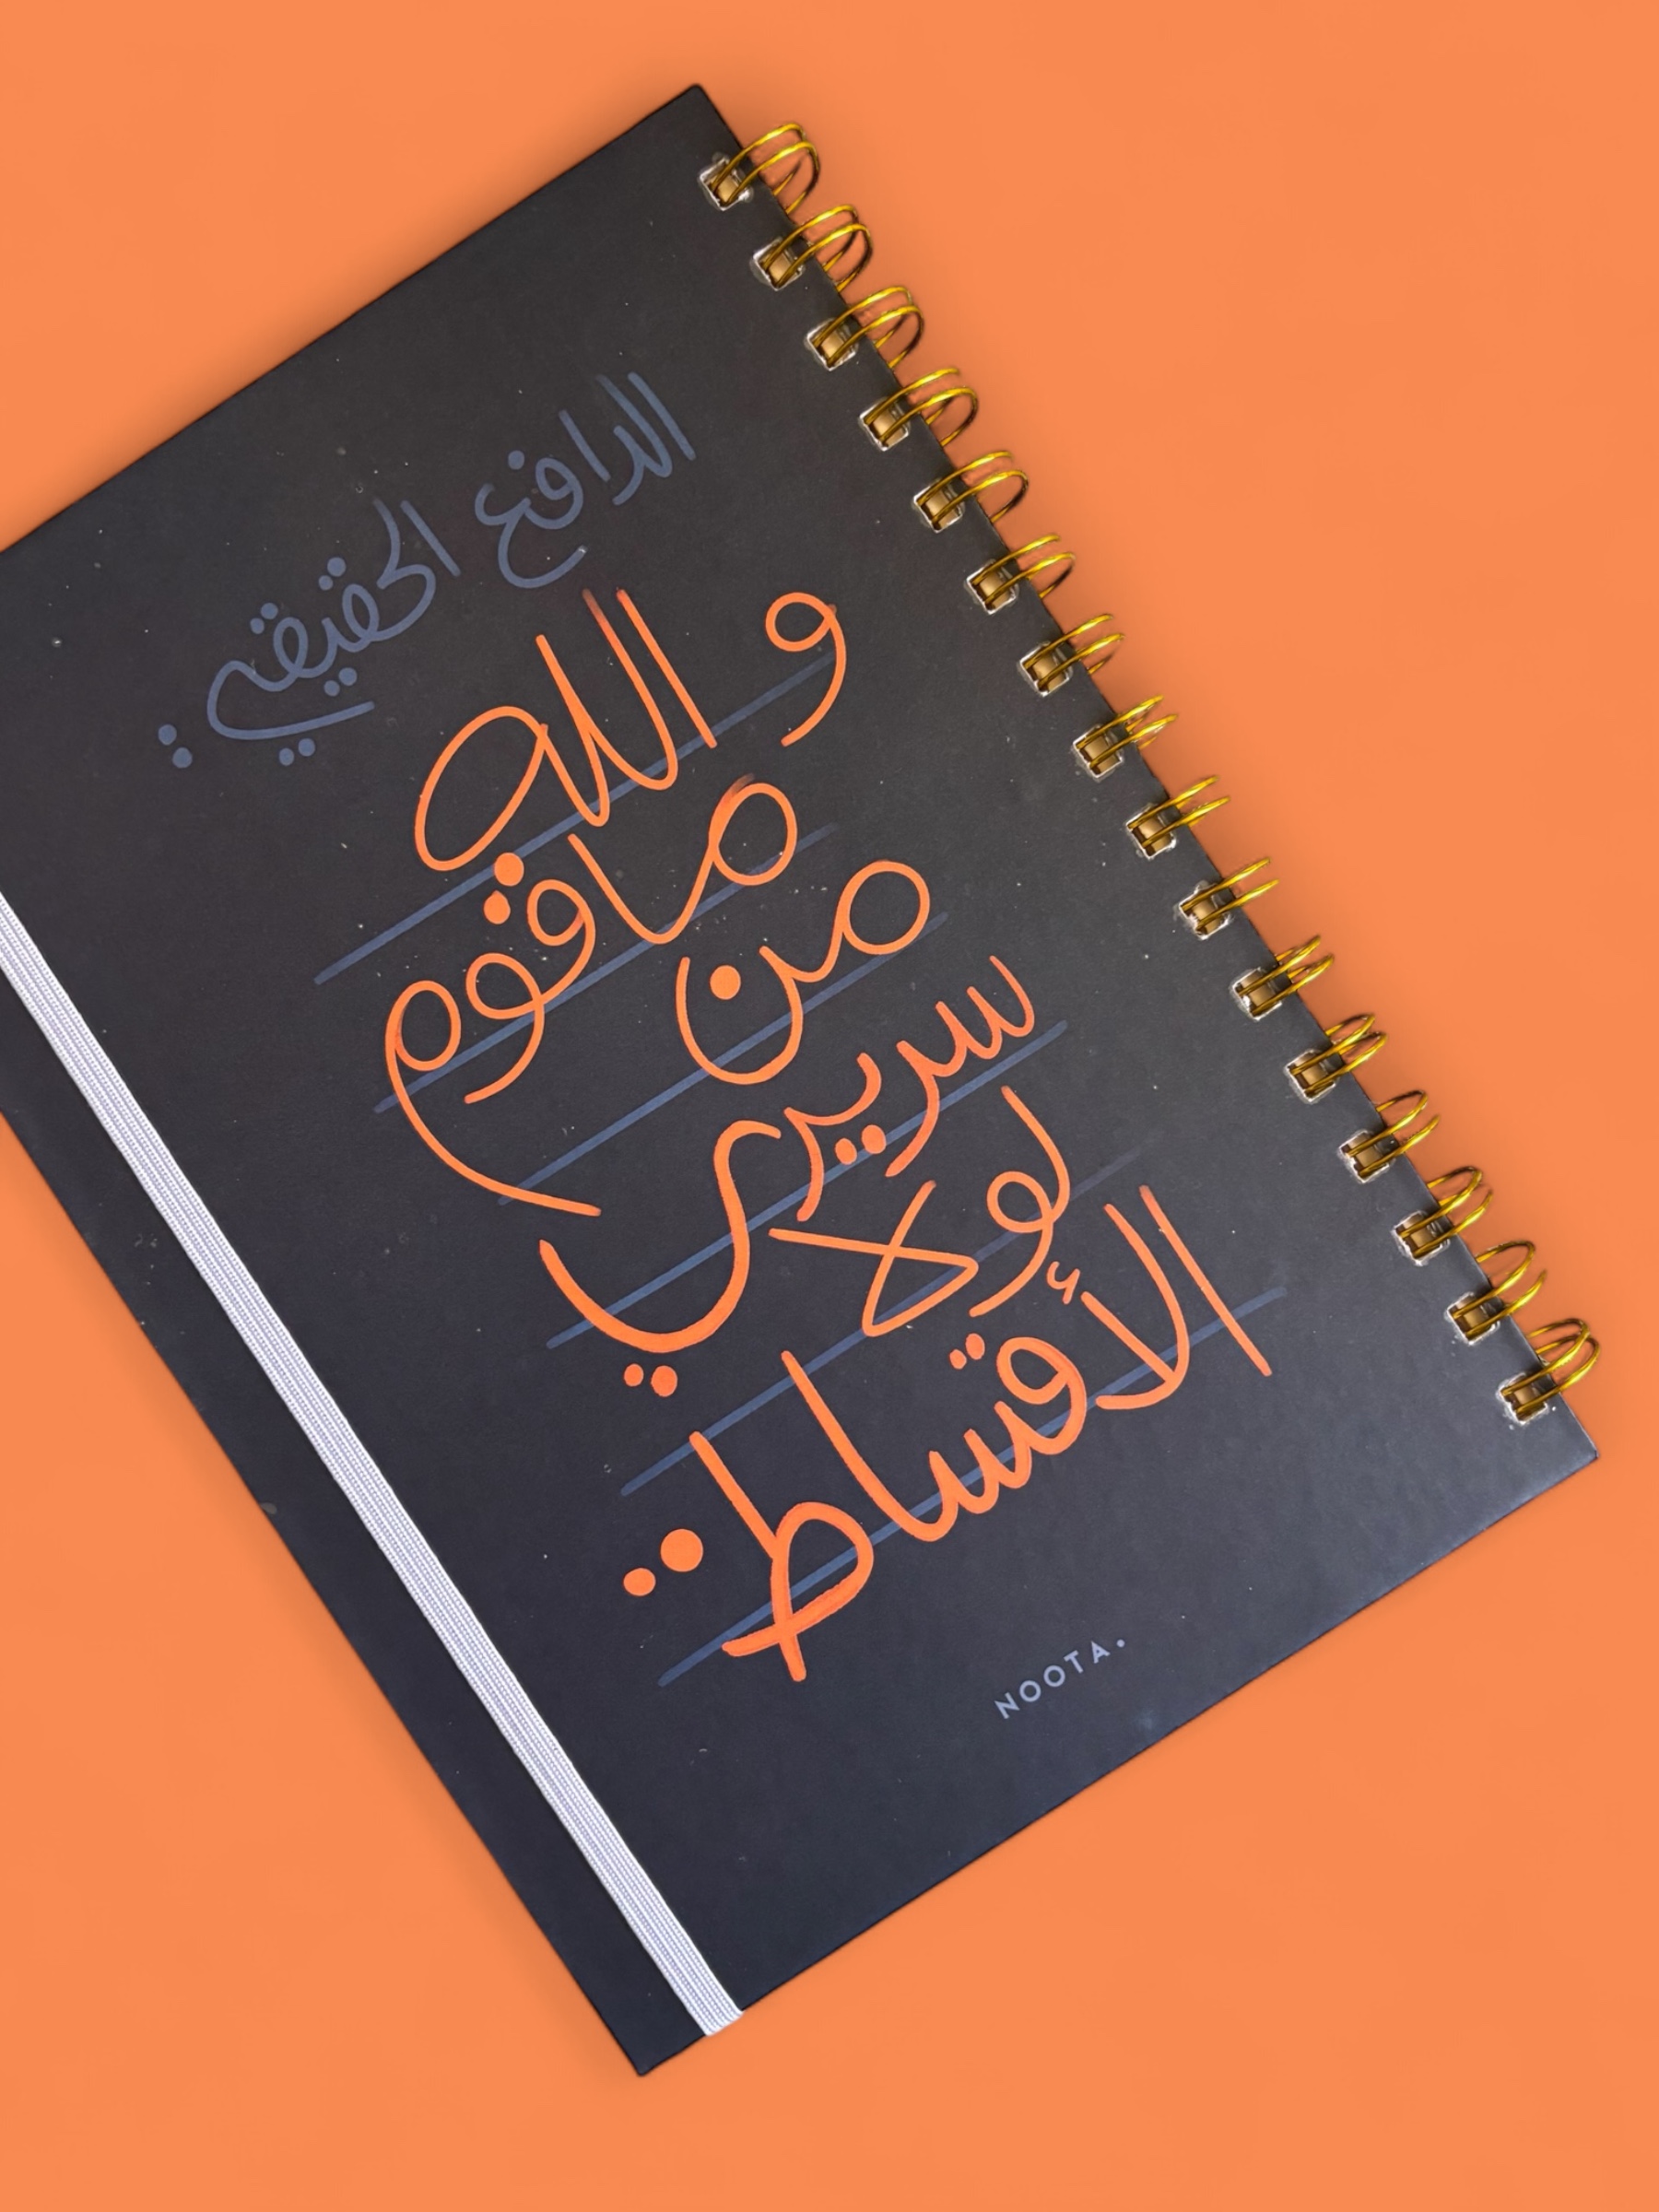 الدافع الحقيقي :
و الله
ما قوم
من
سريري
لولا
الأقساط ..
NOOTA.